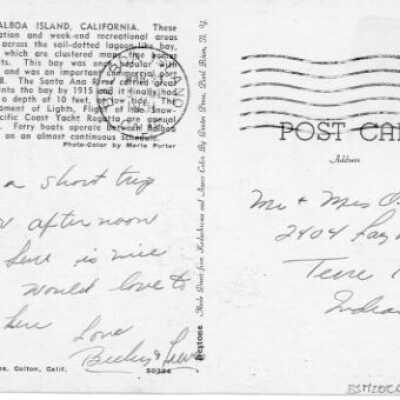 ALBOA ISLAND, CALIFORNIA. These
ation and week-end recreational areas
across the sail-dotted lagoon-like bay,
which are clustered
ts. This bay was once popular with
and was an important commercial port
The Santa Ana River carried
into the bay by 1915 and it finally had
a depth of 10 feet, low tide. The
nament of Lights, Flight of the Snow-
cific Coast Yacht Regatta are annual
Ferry boats operate between Balboa
on an almost continuous schedule.
Photo-Color by Merle Porter
a short trip
afternoon
here is nice
would love to
here Love
Becky &
es, Colton, Calif.
50384
Nestone
Made Direct from Kodachrome and Ansco Color By Dexter Press, Pearl River, N. Y.
POST CA
Address
Mr & Mrs
2404
Terre
Indian